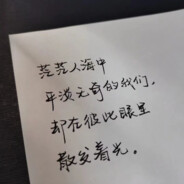 茫茫人海中
平淡无奇的我们,
却在彼此眼里
散发着光。